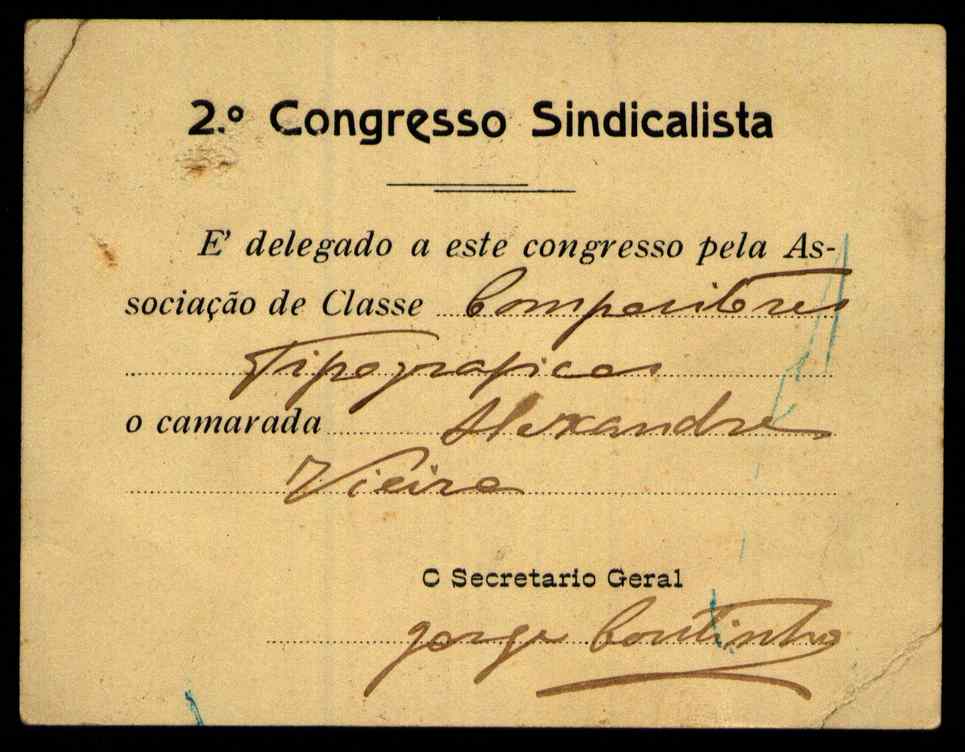 2.º Congresso Sindicalista
E' delegado a este congresso pela As-
sociação de Classe Compositores
Tipograficos
o camarada Alexandre
Vieira
O Secretario Geral
Jorge Coutinho